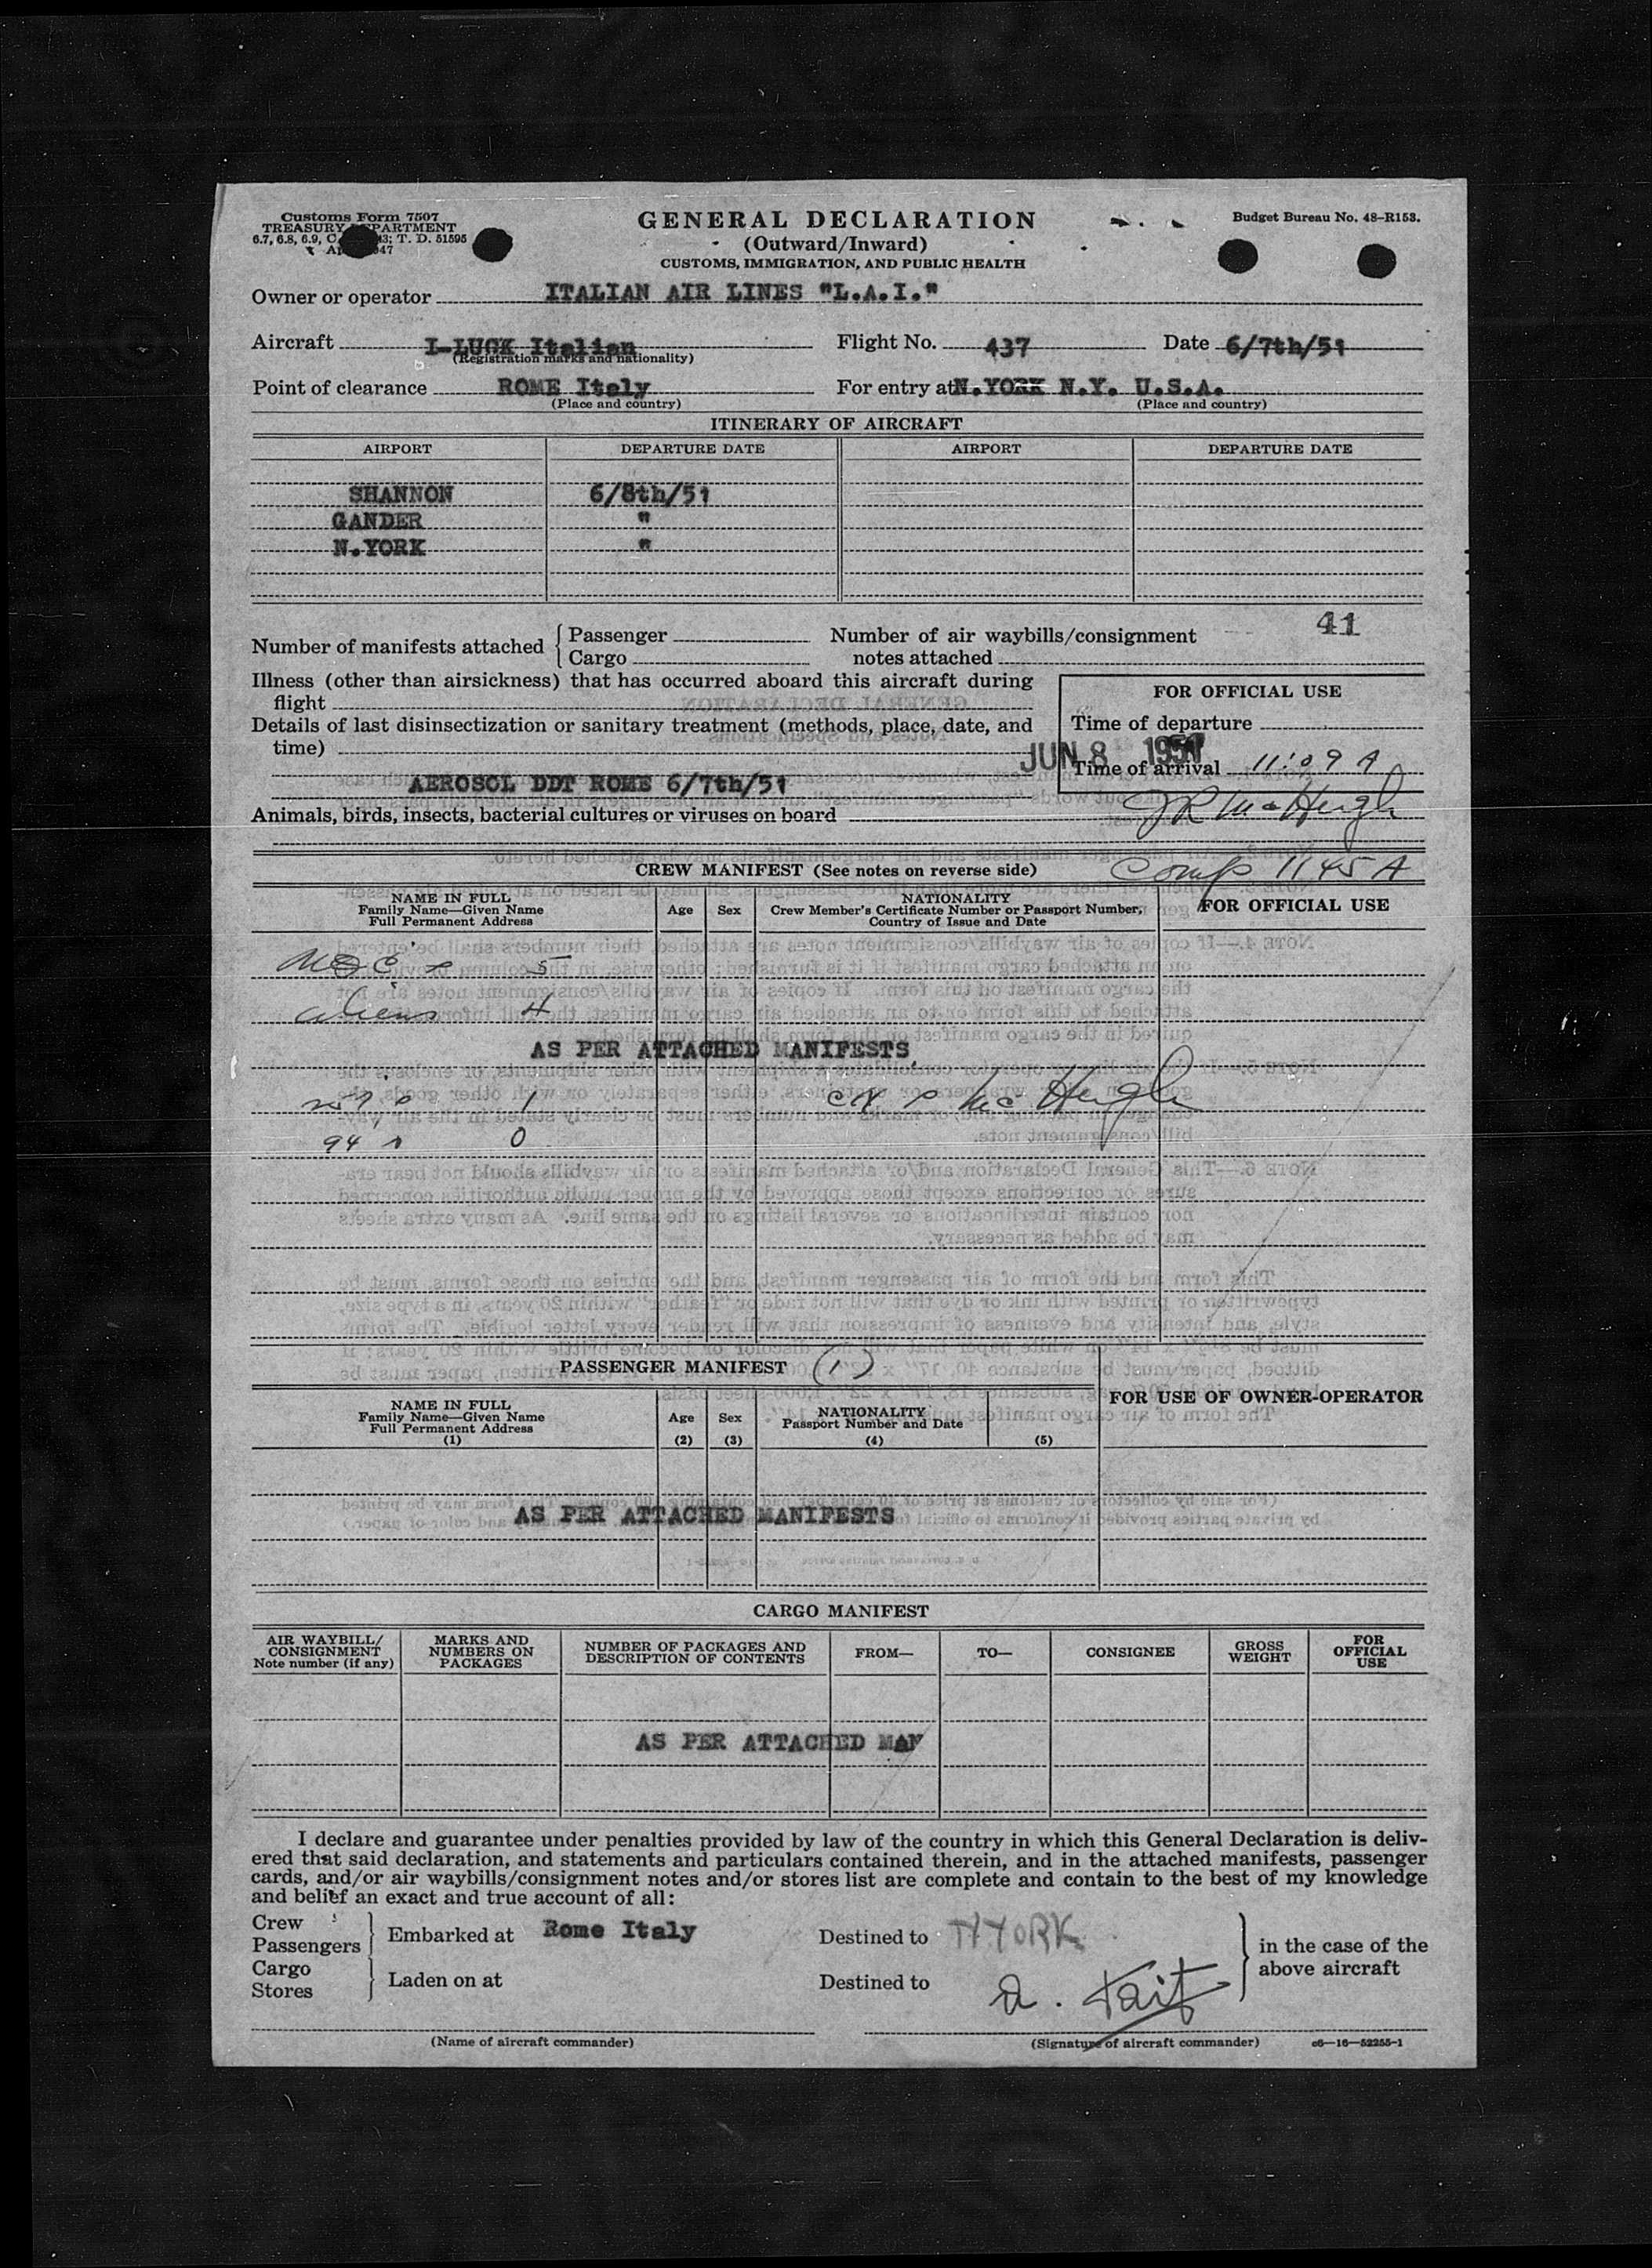 Customs Form 7507
TREASURY DEPARTMENT
6.7, 6.8, 6.9, C. 43; T. D. 51595
GENERAL DECLARATION
(Outward/Inward)
CUSTOMS, IMMIGRATION, AND PUBLIC HEALTH
Budget Bureau No. 48-R153.
Owner or operator ITALIAN AIR LINES "L.A.I."
Aircraft I-LUCK Italian Flight No. 437 Date 6/7th/51
(Registration marks and nationality)
Point of clearance ROME Italy For entry at N.YORK N.Y. U.S.A.
(Place and country) (Place and country)
ITINERARY OF AIRCRAFT
AIRPORT DEPARTURE DATE AIRPORT DEPARTURE DATE
SHANNON 6/8th/51
GANDER "
N.YORK "
41
Number of manifests attached { Passenger Number of air waybills/consignment
Cargo notes attached
Illness (other than airsickness) that has occurred aboard this aircraft during
flight
Details of last disinsectization or sanitary treatment (methods, place, date, and
time)
AEROSOL DDT ROME 6/7th/51
FOR OFFICIAL USE
Time of departure
JUN 8 1951
Time of arrival 11:09 A
J R McHugh
Animals, birds, insects, bacterial cultures or viruses on board
CREW MANIFEST (See notes on reverse side) Comp 11 45 A
NAME IN FULL
Family Name—Given Name
Full Permanent Address
Age Sex
NATIONALITY
Crew Member's Certificate Number or Passport Number,
Country of Issue and Date
FOR OFFICIAL USE
5
aliens 4
AS PER ATTACHED MANIFESTS
1
McHugh
94 0
PASSENGER MANIFEST (1)
NAME IN FULL
Family Name—Given Name
Full Permanent Address
(1)
Age
(2)
Sex
(3)
NATIONALITY
Passport Number and Date
(4) (5)
FOR USE OF OWNER-OPERATOR
AS PER ATTACHED MANIFESTS
CARGO MANIFEST
AIR WAYBILL/
CONSIGNMENT
Note number (if any)
MARKS AND
NUMBERS ON
PACKAGES
NUMBER OF PACKAGES AND
DESCRIPTION OF CONTENTS
FROM—
TO—
CONSIGNEE
GROSS
WEIGHT
FOR
OFFICIAL
USE
AS PER ATTACHED MAN
I declare and guarantee under penalties provided by law of the country in which this General Declaration is deliv-
ered that said declaration, and statements and particulars contained therein, and in the attached manifests, passenger
cards, and/or air waybills/consignment notes and/or stores list are complete and contain to the best of my knowledge
and belief an exact and true account of all:
Crew
Passengers } Embarked at Rome Italy Destined to N YORK
Cargo
Stores } Laden on at Destined to
in the case of the
above aircraft
a. Tait
(Name of aircraft commander) (Signature of aircraft commander) c6—16—52255-1